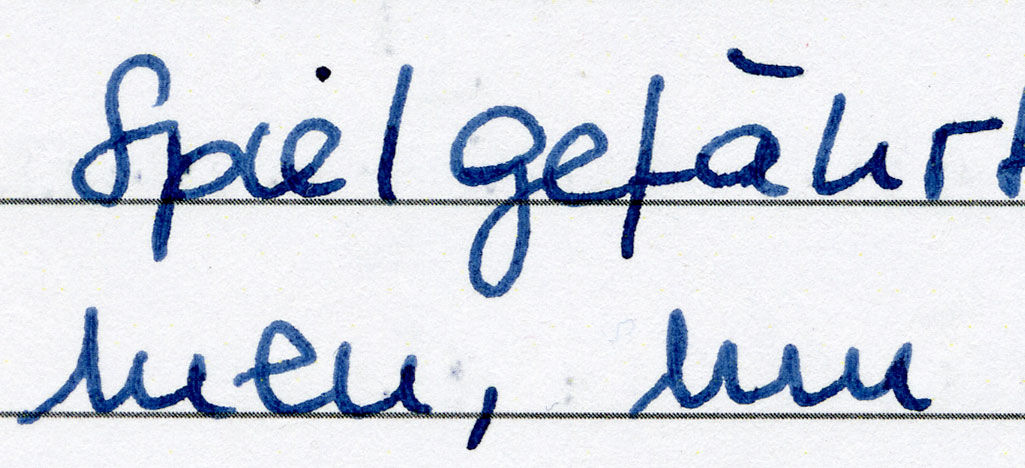 Spielgefährt
men, um